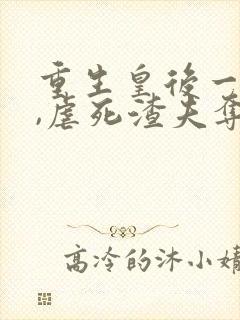 重生皇后一
,虐死渣夫夺
高冷的沐小婧